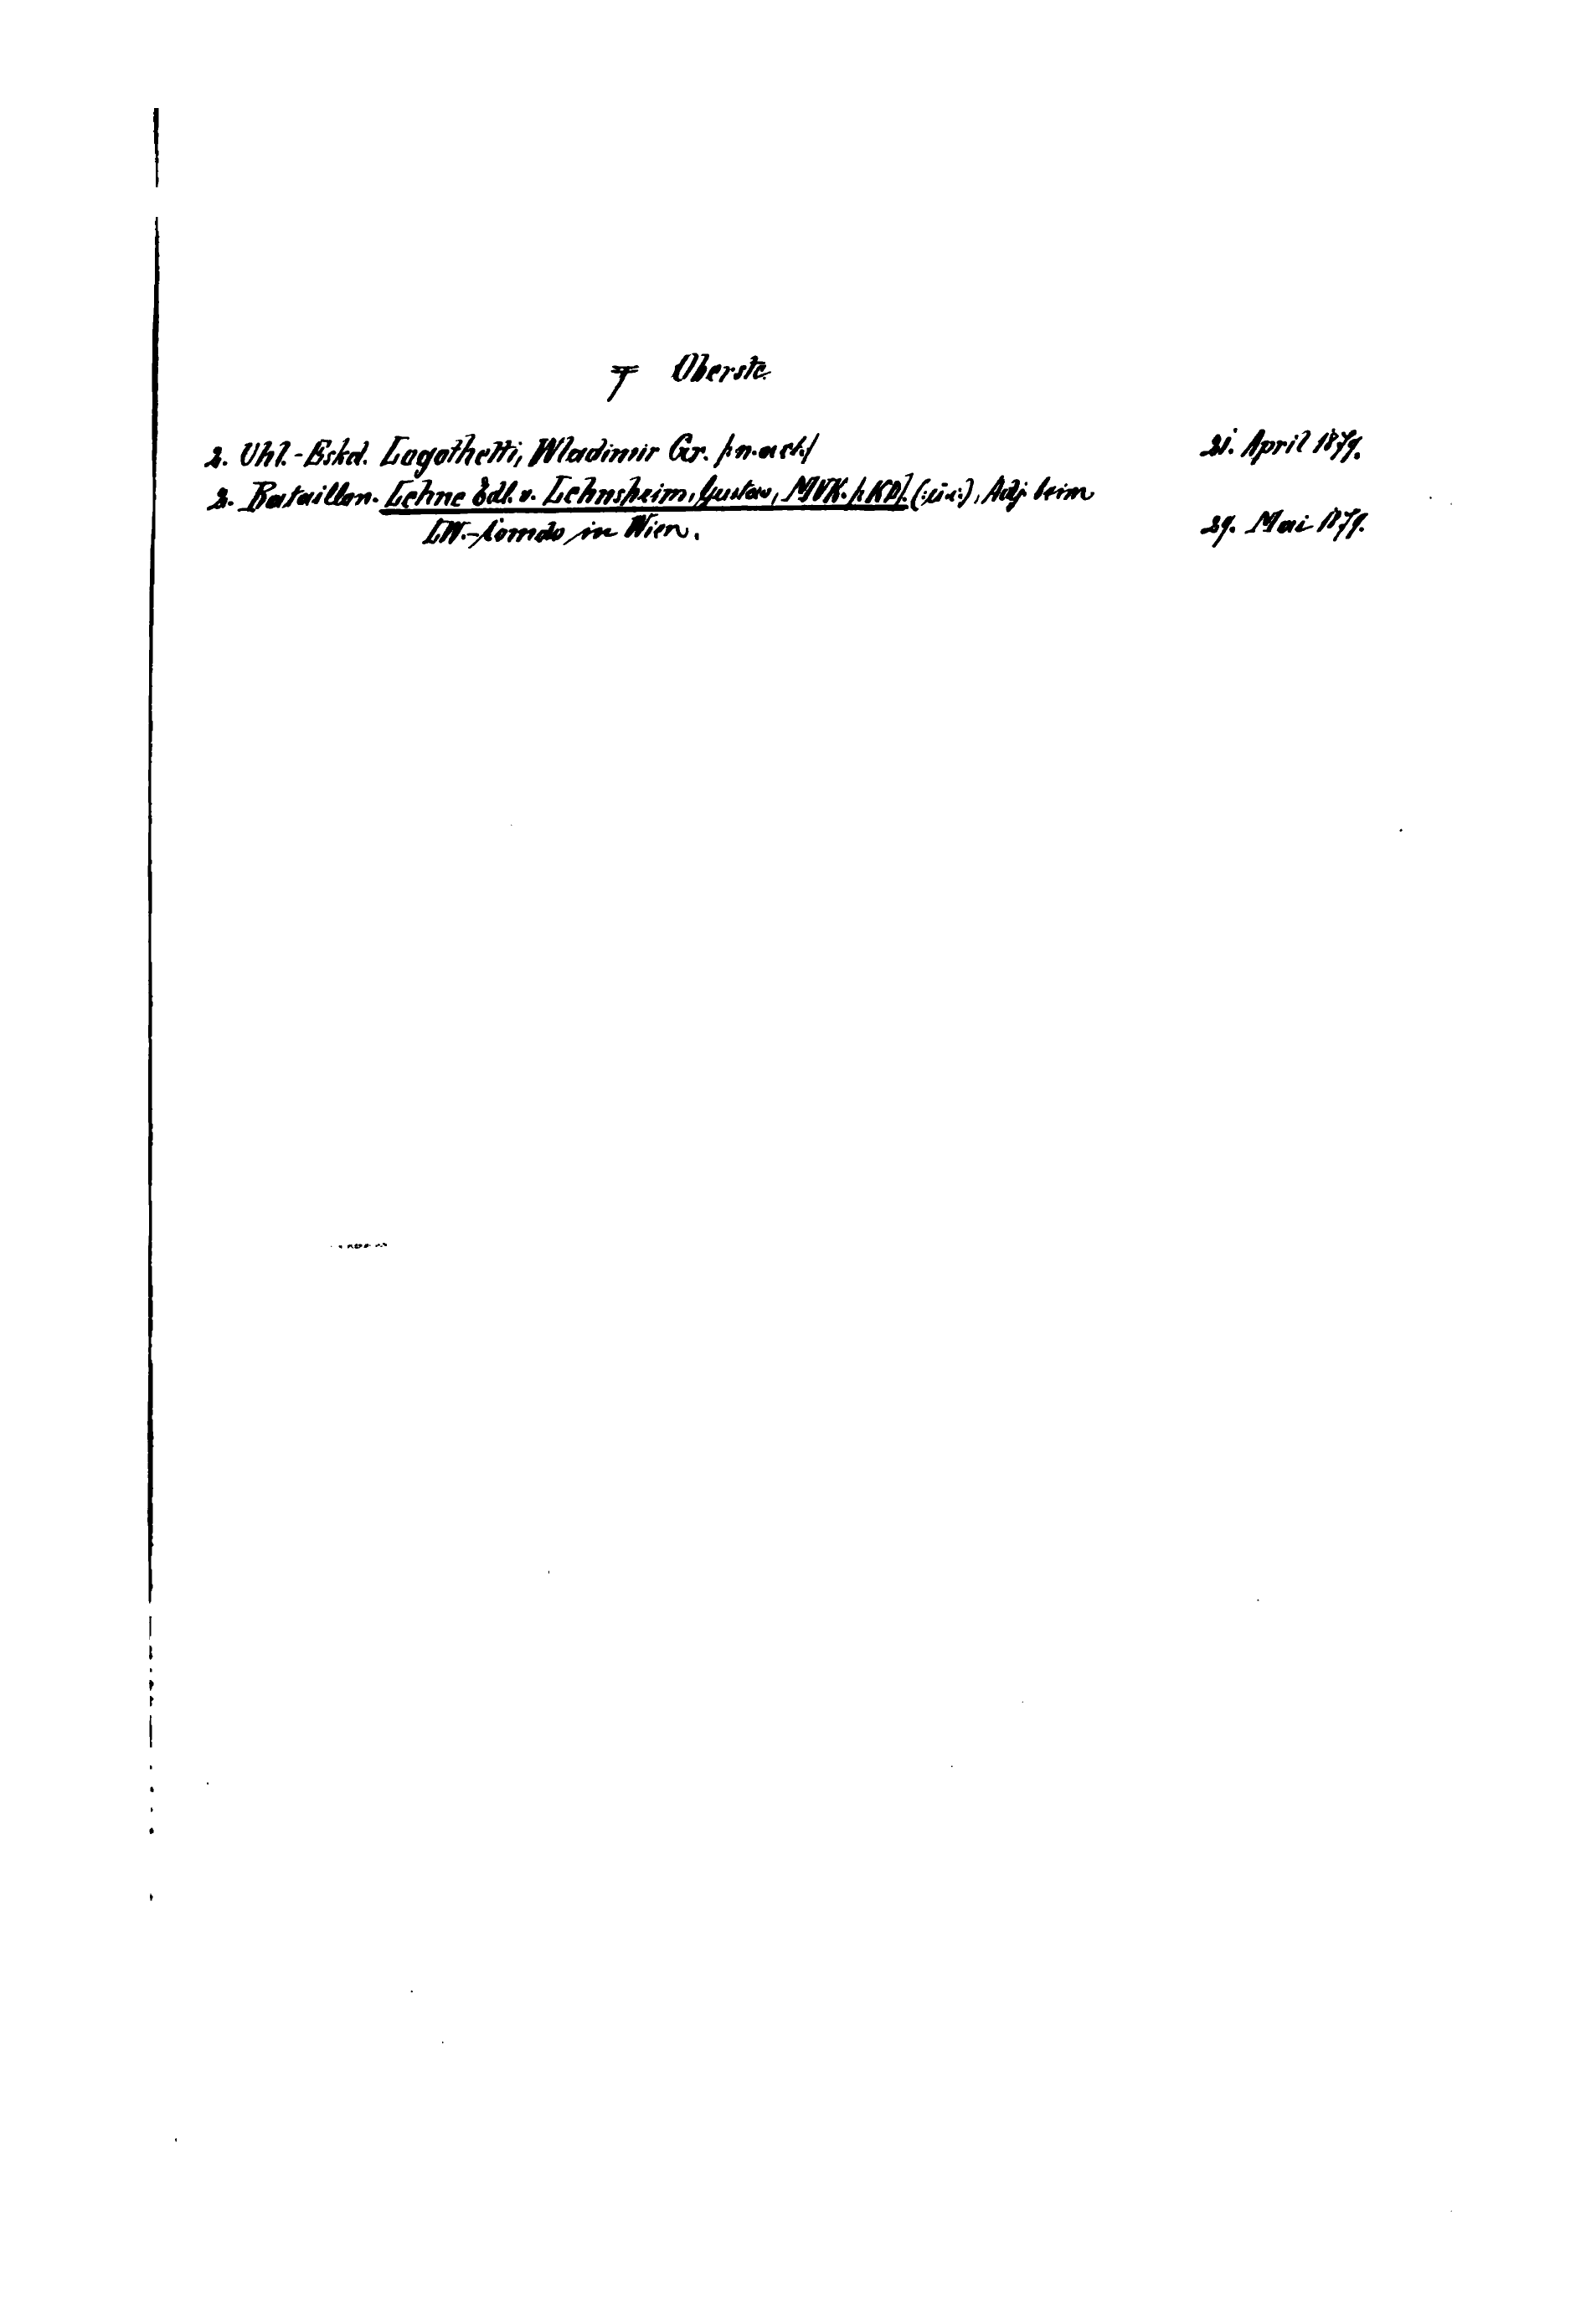 Oberste
2. Uhl.-Eskd. Logothetti, Wladimir Gr. /:n. act:/ 21. April 1879.
2. Bataillon. Lehne Edl. v. Lehnsheim, Gustav, MVK. /:KD/. (:ü.c:), Adj. beim
LW.-Comdo in Wien. 29. Mai 1879.